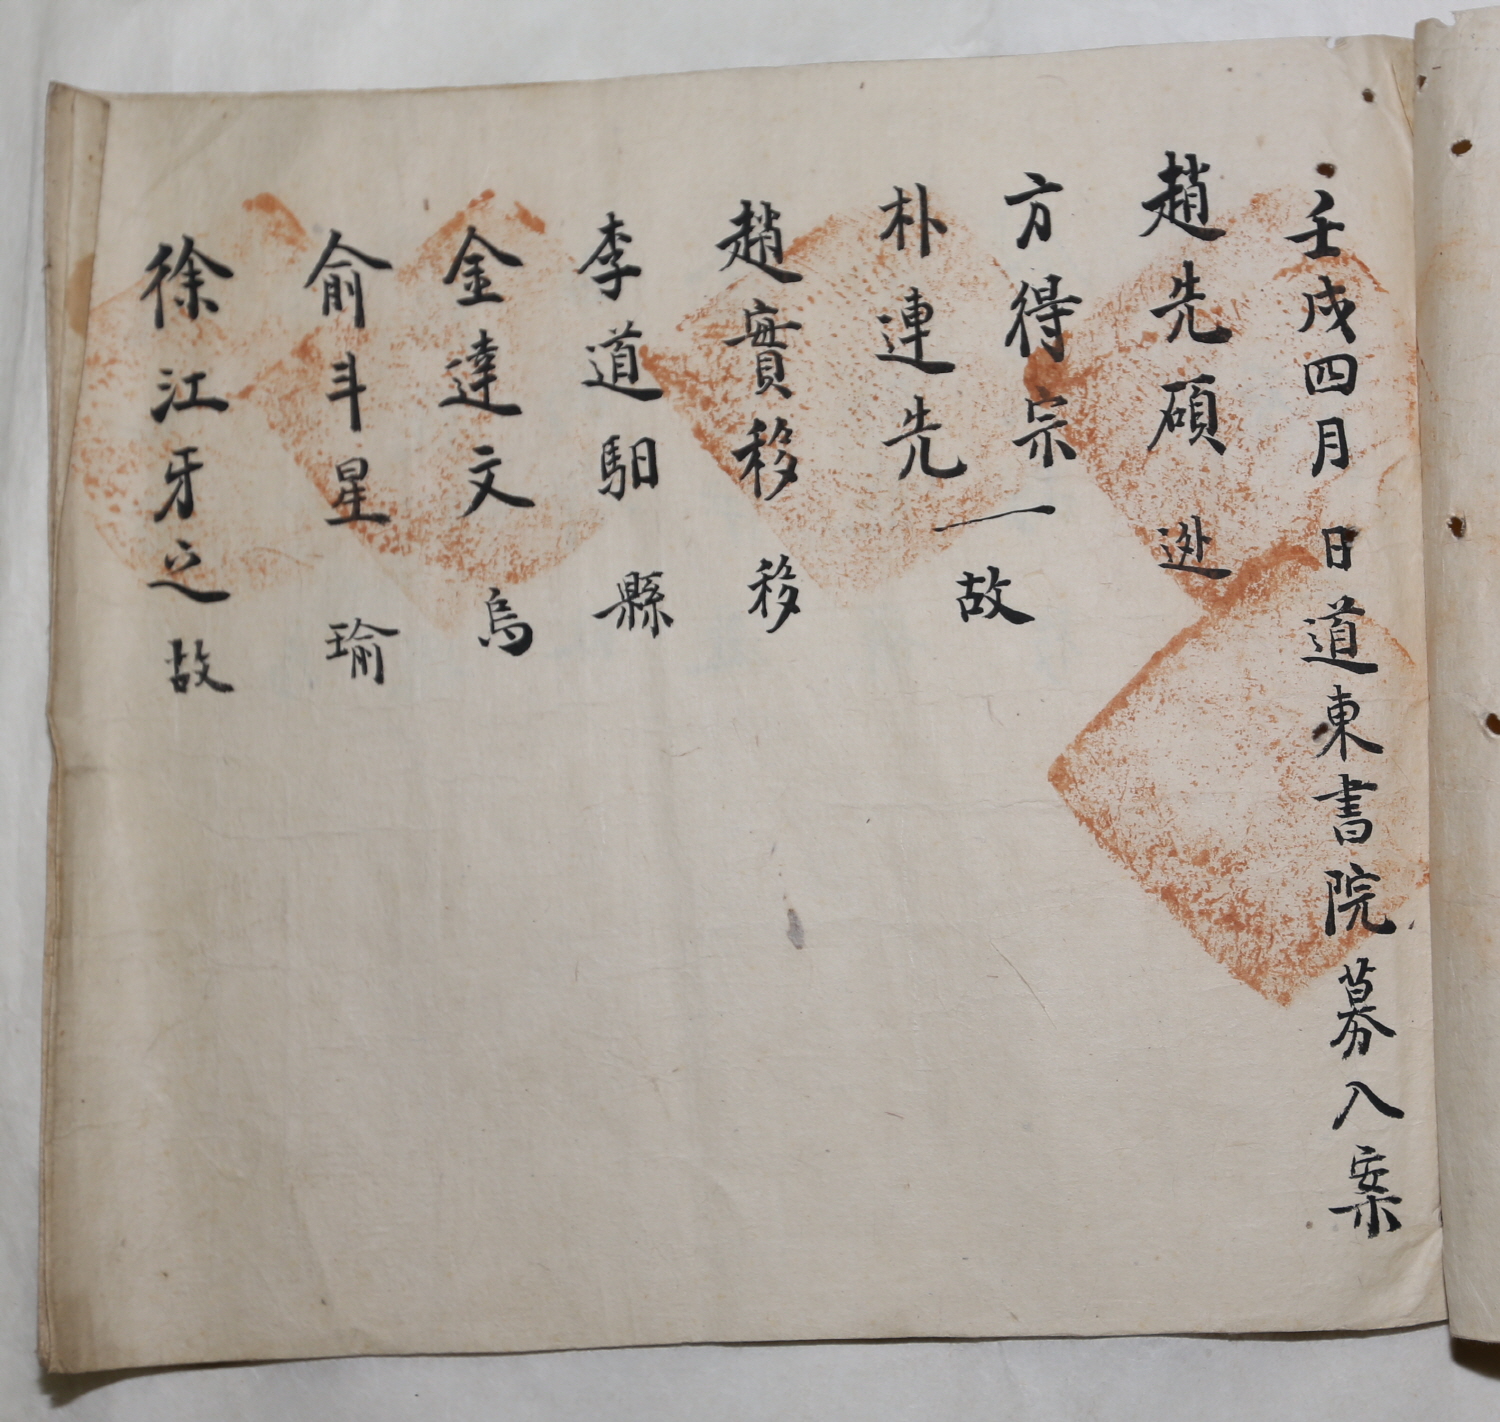 壬戌四月 日道東書院募入案
趙先碩 迯
方得宗 一故
朴連先
趙實移 移
李道馹 縣
金達文 烏
俞斗星 瑜
徐江牙之 故